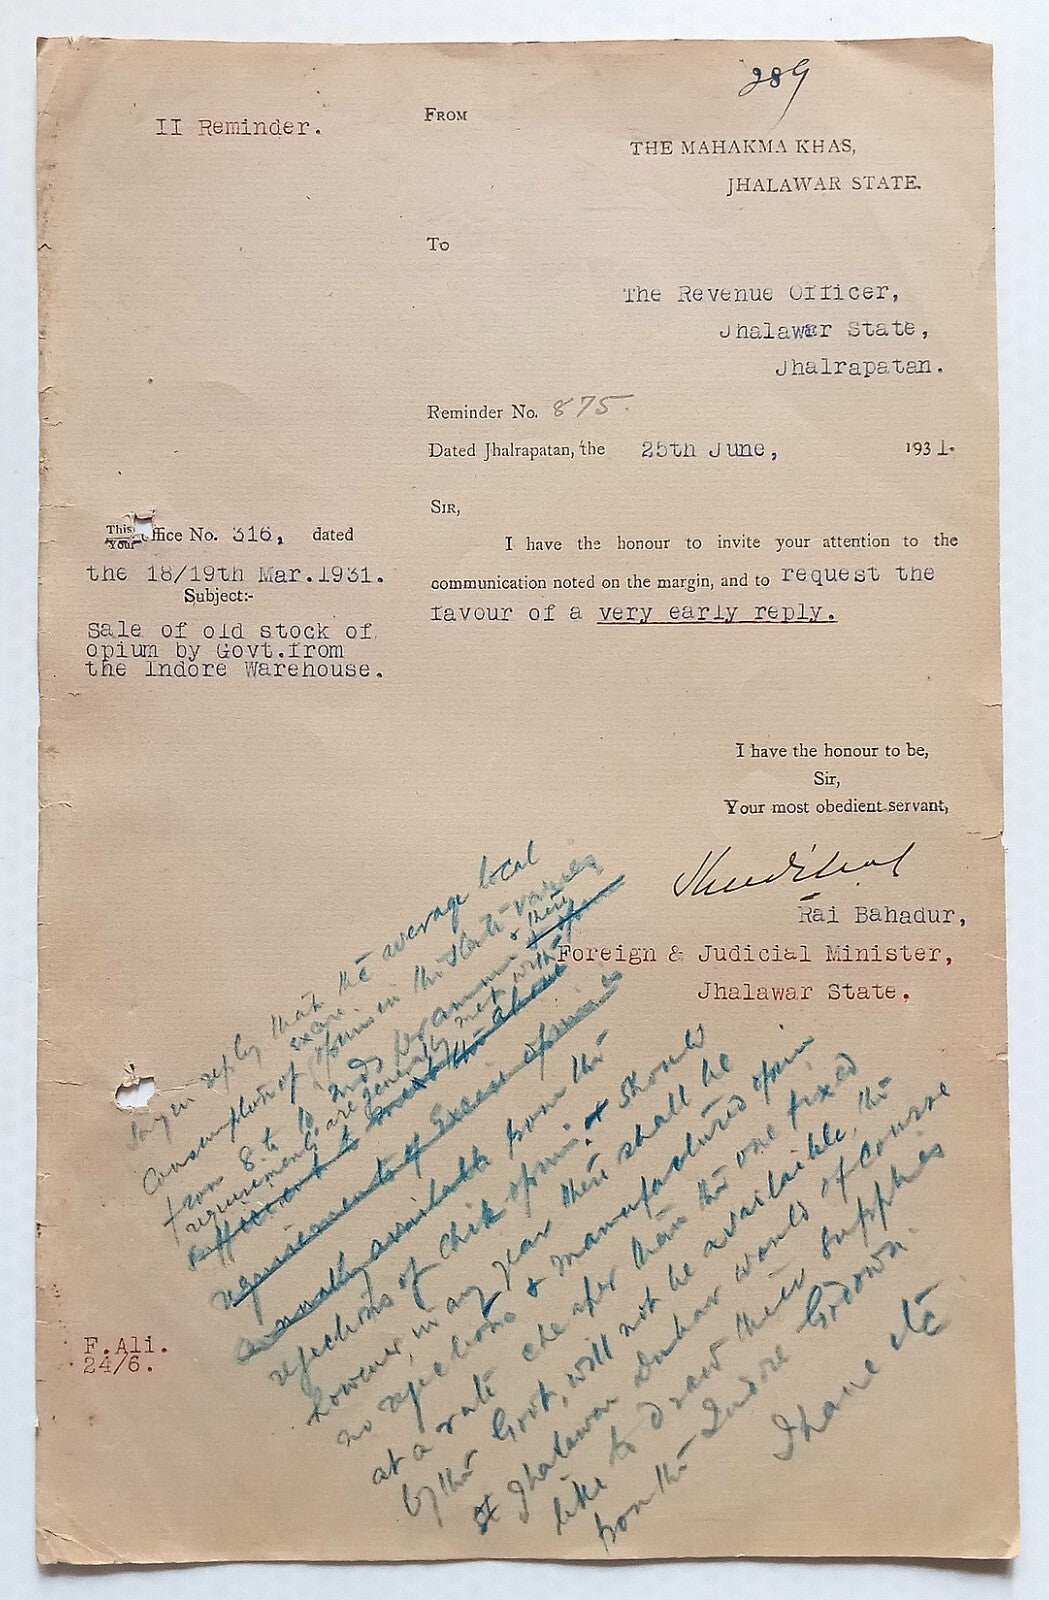 289
II Reminder.
FROM
THE MAHAKMA KHAS,
JHALAWAR STATE.
To
The Revenue Officer,
Jhalawar State,
Jhalrapatan.
Reminder No. 875.
Dated Jhalrapatan, the 25th June, 1931.
SIR,
This
Your office No. 316, dated
the 18/19th Mar.1931.
Subject:-
Sale of old stock of
opium by Govt.from
the Indore Warehouse.
I have the honour to invite your attention to the
communication noted on the margin, and to request the
favour of a very early reply.
I have the honour to be,
Sir,
Your most obedient servant,
Rai Bahadur,
Foreign & Judicial Minister,
Jhalawar State.
F.Ali.
24/6.
reply that the average local
consumption of excise opium in the State varies
from 8 to 10 mds per annum & their
requirements are generally met with
sufficient to meet the about
requirements of Excise opium is
annually available from the
rejections of Chik opium. & Should
however, in any year there shall be
no rejections & manufactured opium
at a rate cheaper than the one fixed
by the Govt, will not be available, the
Jhalawar Durbar would of course
like to draw their supplies
from the Indore Godown.
I have etc